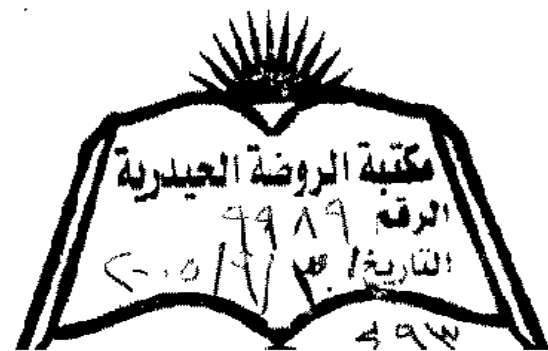 مكتبة الروضة الحيدرية
الرقم ٩٩٨٩
التاريخ / ٣ / ٩ / ٢٠٠٥
٤٩٣